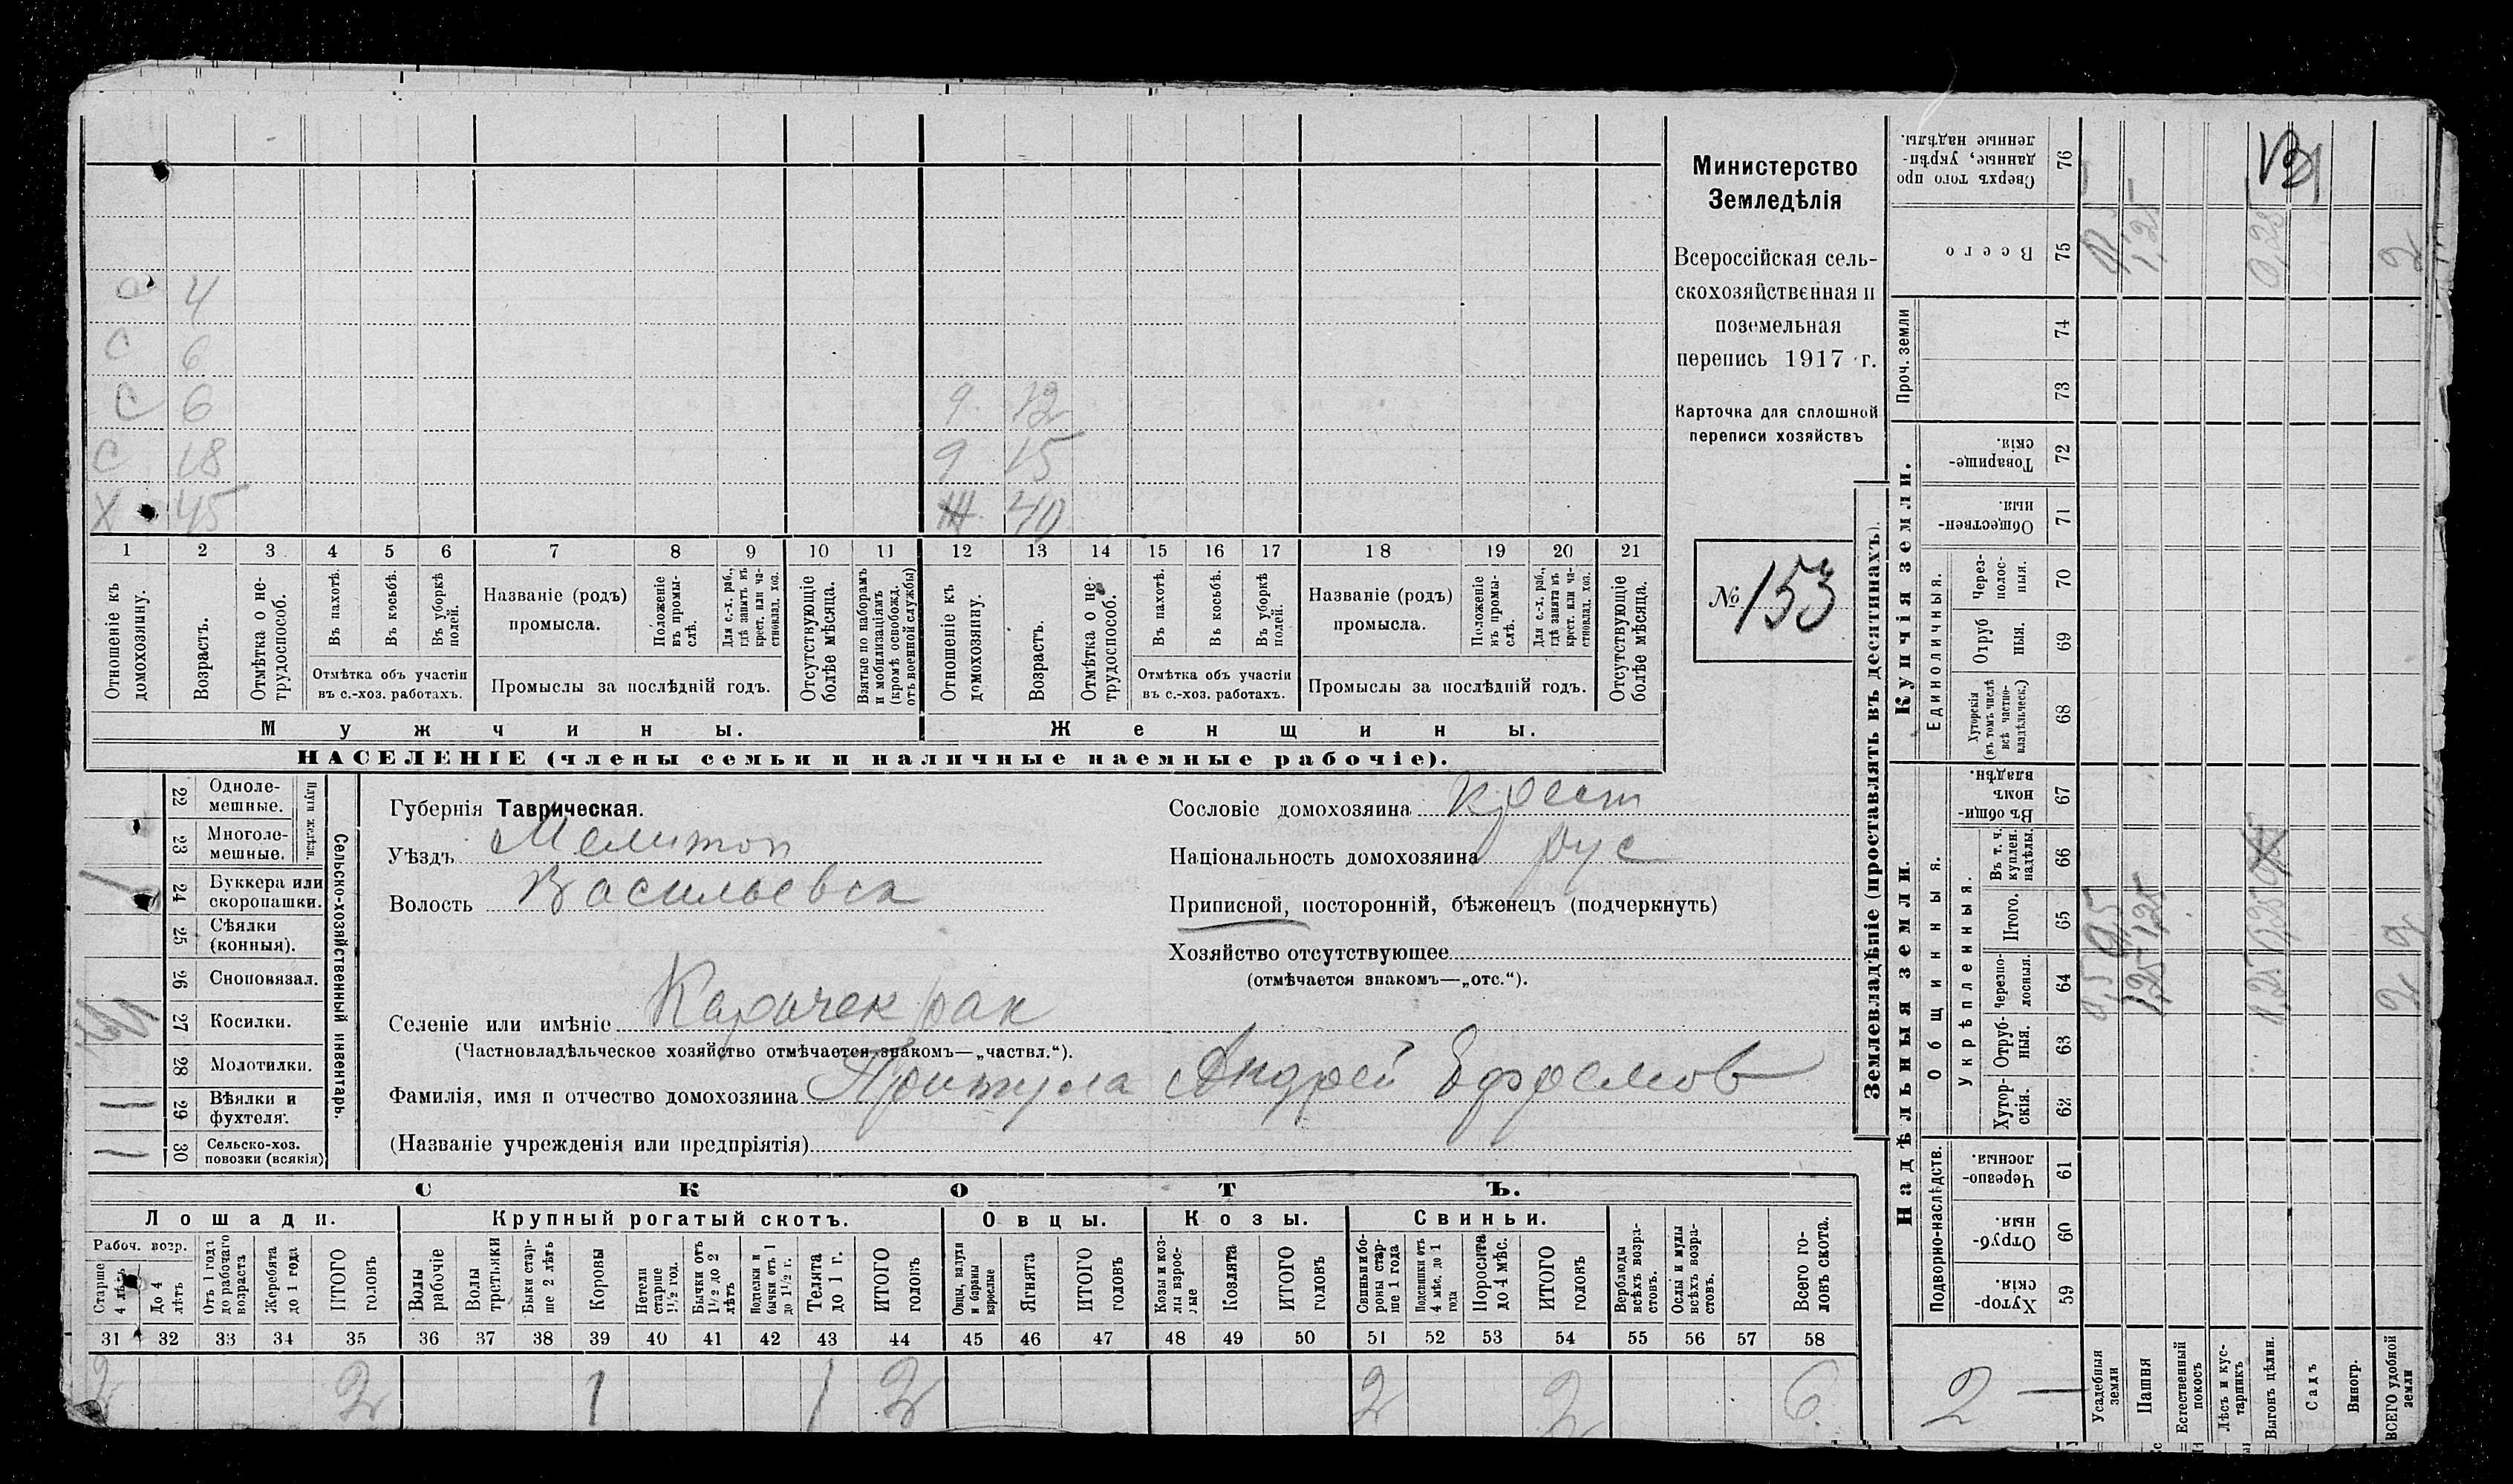 с 4
с 6
с 6 9 12
с 18 9 15
х 45 ж 40
1 2 3 4 5 6 7 8 9 10 11 12 13 14 15 16 17 18 19 20 21
Отношеніе къ домохозяину.
Возрастъ.
Отмѣтка о не-трудоспособ.
Въ пахотѣ.
Въ косьбѣ.
Въ уборкѣ полей.
Отмѣтка объ участіи
въ с.-хоз. работахъ.
Названіе (родъ)
промысла.
Положеніе въ промы-слѣ.
Для с.-х. раб., гдѣ занятъ въ крест. или ча-стновлад. хоз.
Промыслы за послѣдній годъ.
Отсутствующіе болѣе мѣсяца.
Взятые по наборамъ и мобилизаціямъ (кромѣ освобожд. отъ военной службы)
Отношеніе къ домохозяину.
Возрастъ.
Отмѣтка о не-трудоспособ.
Въ пахотѣ.
Въ косьбѣ.
Въ уборкѣ полей.
Отмѣтка объ участіи
въ с.-хоз. работахъ.
Названіе (родъ)
промысла.
Положеніе въ промы-слѣ.
Для с.-х. раб., гдѣ занята въ крест. или ча-стновлад. хоз.
Промыслы за послѣдній годъ.
Отсутствующіе болѣе мѣсяца.
Мужчины. Женщины.
НАСЕЛЕНІЕ (члены семьи и наличные наемные рабочіе).
Министерство
Земледѣлія
Всероссійская сель-
скохозяйственная и
поземельная
перепись 1917 г.
Карточка для сплошной
переписи хозяйствъ
№ 153
22 Одноле-
мешные.
23 Многоле-
мешные.
Плуги желѣзн.
24 Буккера или
скоропашки.
25 Сѣялки
(конныя).
26 Сноповязал.
27 Косилки.
28 Молотилки.
29 Вѣялки и
фухтеля.
30 Сельско-хоз.
повозки (всякія)
Сельско-хозяйственный инвентарь.
Губернія Таврическая.
Уѣздъ Мелитоп
Волость Васильевск
Селеніе или имѣніе Карачекрак
(Частновладѣльческое хозяйство отмѣчается знакомъ—„частвл.“).
Фамилія, имя и отчество домохозяина Притула Андрей Ефремов
(Названіе учрежденія или предпріятія)
Сословіе домохозяина крест
Національность домохозяина рус
Приписной, посторонній, бѣженецъ (подчеркнуть)
Хозяйство отсутствующее
(отмѣчается знакомъ—„отс.“).
СКОТЪ.
Лошади. Крупный рогатый скотъ. Овцы. Козы. Свиньи.
Рабоч. возр.
Старше 4 лѣтъ
До 4 лѣтъ
Отъ 1 года до рабочаго возраста
Жеребята до 1 года
ИТОГО головъ
Волы рабочіе
Волы третьяки
Быки стар-ше 2 лѣтъ
Коровы
Нетели старше 1 1/2 год.
Бычки отъ 1 1/2 до 2 лѣтъ
Подтелки и бычки отъ 1 до 1 1/2 г.
Телята до 1 г.
ИТОГО головъ
Овцы, валухи и бараны взрослые
Ягнята
ИТОГО головъ
Козы и коз-лы взрос-лые
Козлята
ИТОГО головъ
Свиньи и бо-ровы стар-ше 1 года
Подсвинки отъ 4 мѣс. до 1 года
Поросята до 4 мѣс.
ИТОГО головъ
Верблюды всѣхъ возра-стовъ.
Ослы и мулы всѣхъ возра-стовъ.
Всего го-ловъ скота.
31 32 33 34 35 36 37 38 39 40 41 42 43 44 45 46 47 48 49 50 51 52 53 54 55 56 57 58
2 2 1 1 2 2 2 6
Землевладѣніе (проставлять въ десятинахъ).
Надѣльныя земли.
Купчія земли.
Проч. земли
Сверхъ того про-
данные, укрѣп-
ленные надѣлы.
76
Всего
75
74
73
Товарище-
скія.
72
Обществен-
ныя.
71
Единоличныя.
Через-
полос-
ныя.
70
Отруб
ныя.
69
Хуторскія
(въ томъ числѣ
всѣ частно-
владѣльческ.)
68
Общинныя.
Въ общи-
номъ
владѣн.
67
Укрѣпленныя.
Въ т. ч.
куплен.
надѣлы.
66
Итого.
65
Черезпо-
лосныя.
64
Отруб-
ныя.
63
Хутор-
скія.
62
Подворно-наслѣдств.
Черезпо-
лосныя.
61
Отруб-
ныя.
60
Хутор-
скія.
59
Усадебныя земли 0,5
Пашня 1,25 1,25 1,25
Естественный покосъ
Лѣсъ и кус-тарникъ
Выгонъ цѣлин. 0,25 0,25 0,25
Садъ
Виногр.
ВСЕГО удобной земли 2 2 2
2 —